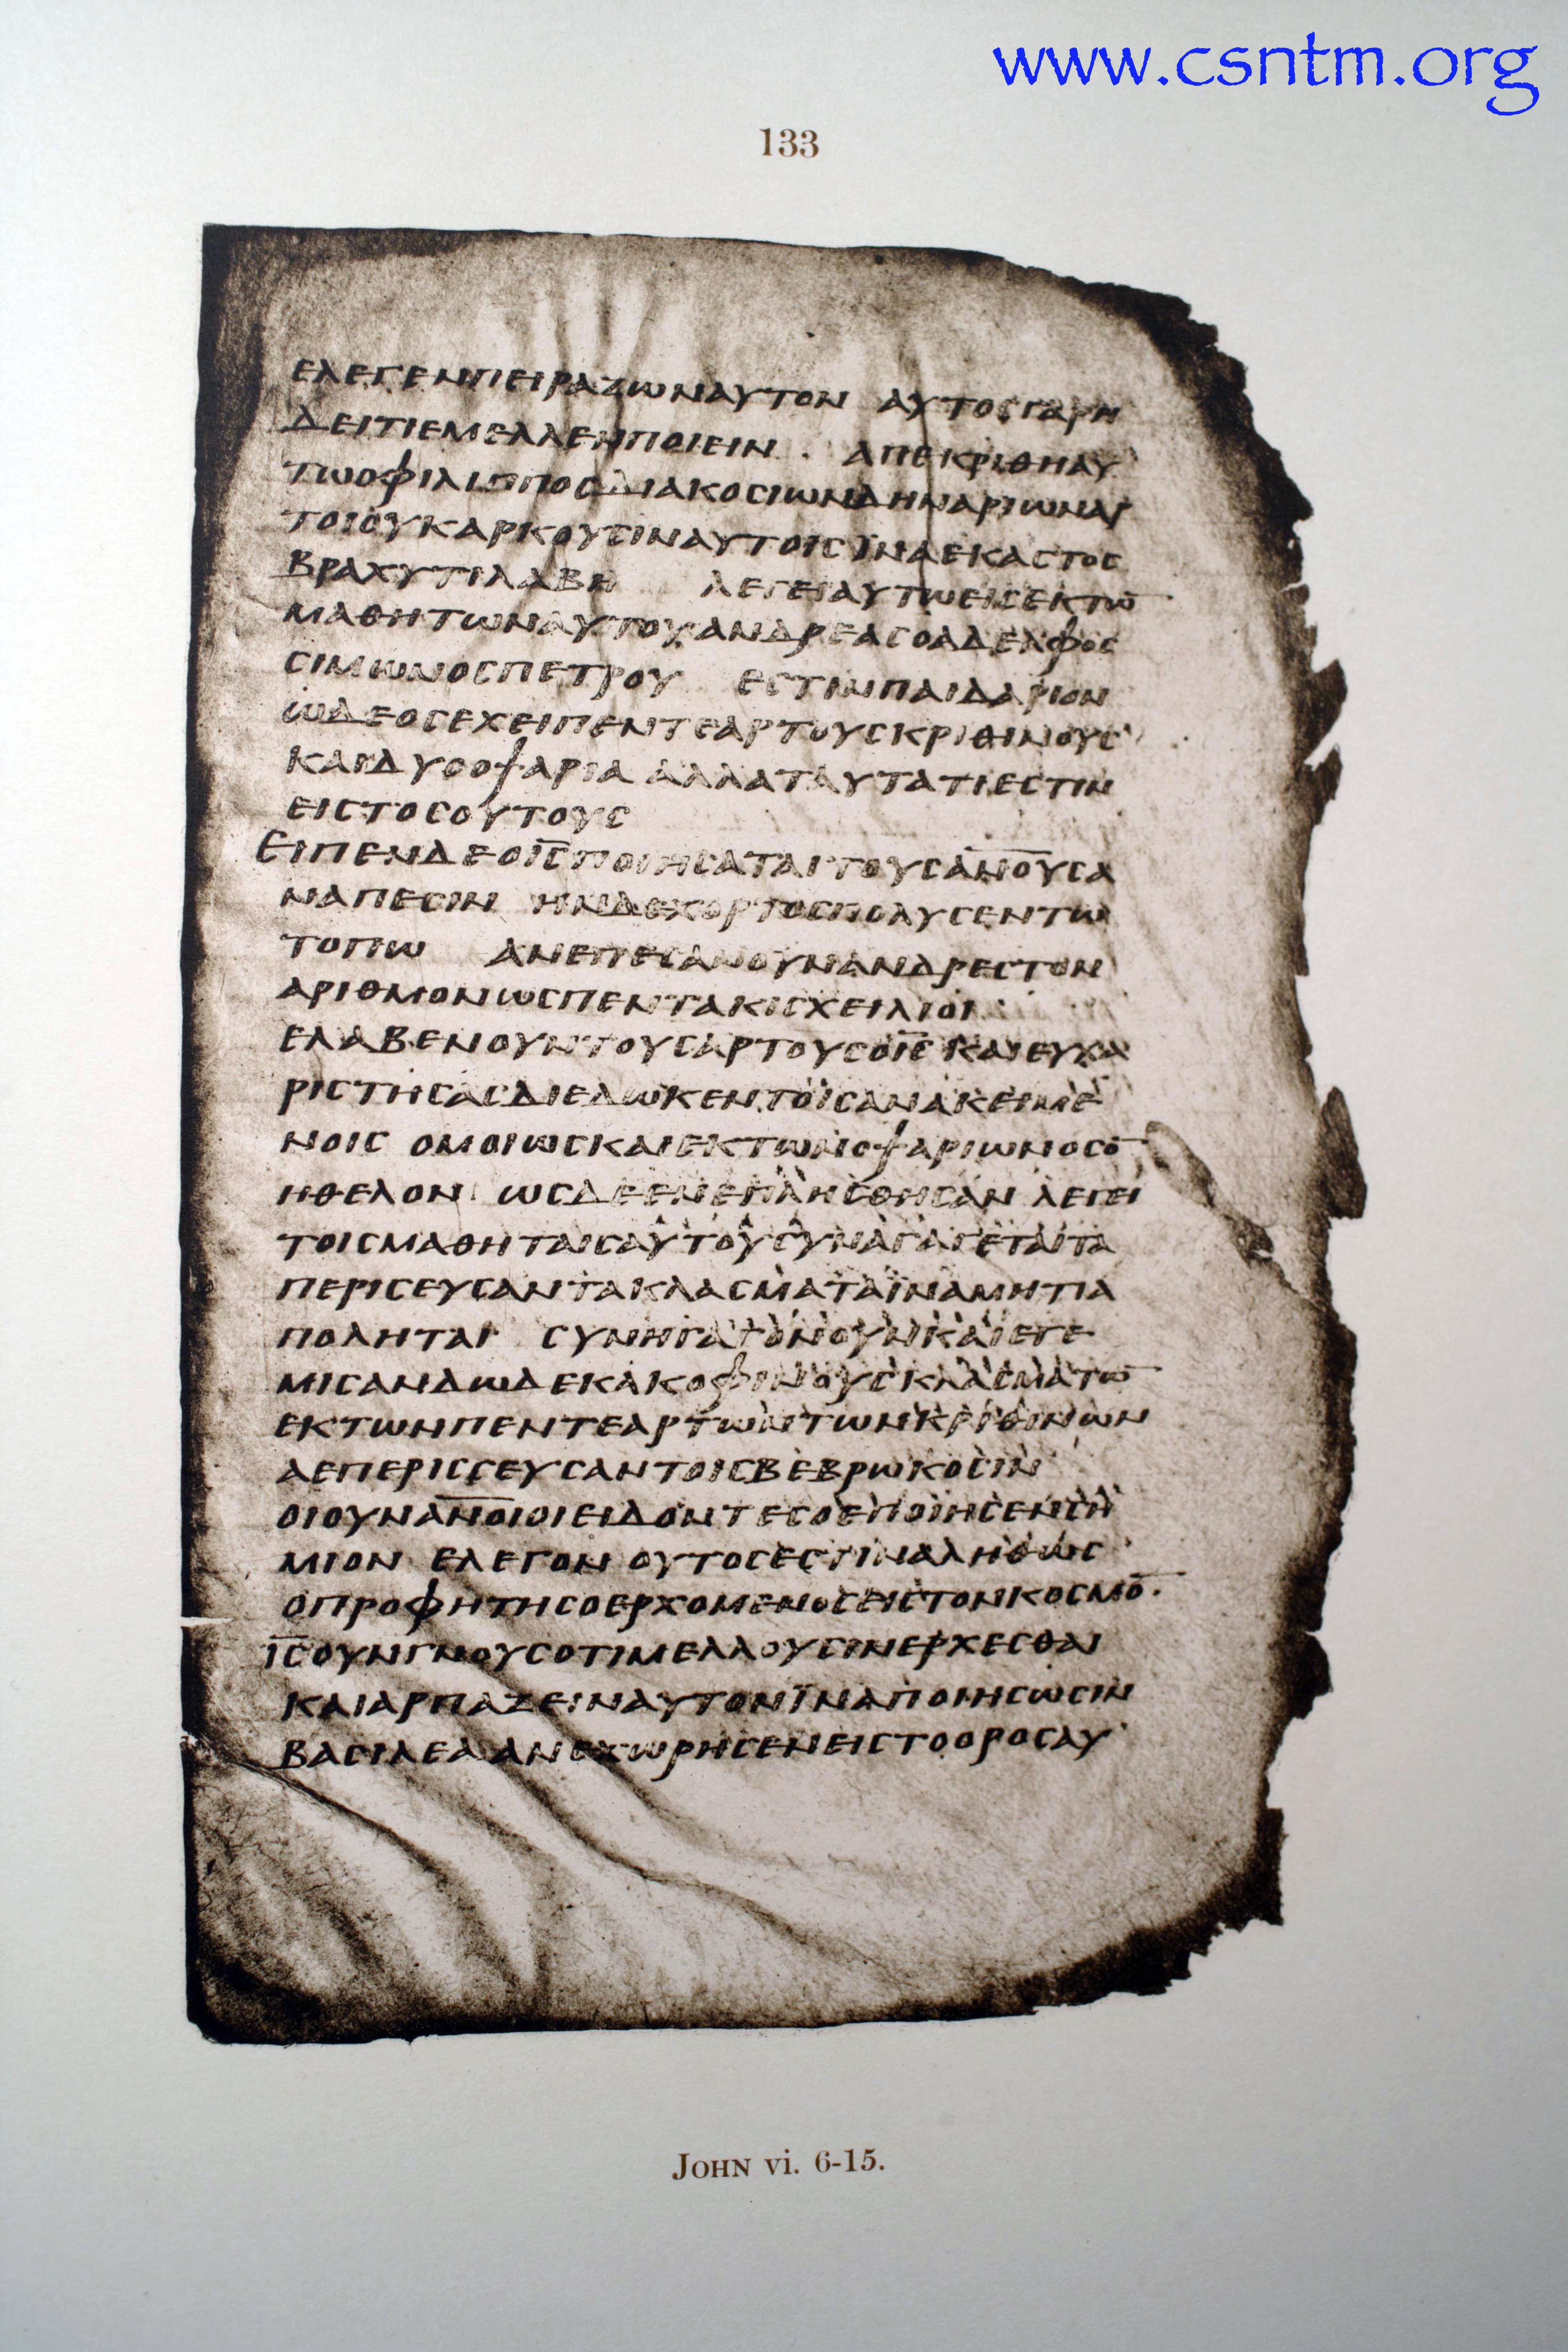 www.csntm.org
133
ΕΛΕΓΕΝΠΕΙΡΑΖΩΝΑΥΤΟΝ ΑΥΤΟΣΓΑΡΗ
ΔΕΙΤΙΕΜΕΛΛΕΝΠΟΙΕΙΝ · ΑΠΕΚΡΙΘΗΑΥ
ΤΩΟΦΙΛΙΠΠΟϹΔΙΑΚΟϹΙΩΝΔΗΝΑΡΙΩΝΑΡ
ΤΟΙΟΥΚΑΡΚΟΥϹΙΝΑΥΤΟΙϹΪΝΑΕΚΑϹΤΟϹ
ΒΡΑΧΥΤΙΛΑΒΗ ΛΕΓΕΙΑΥΤΩΕΙϹΕΚΤΩ̅
ΜΑΘΗΤΩΝΑΥΤΟΥΑΝΔΡΕΑϹΟΑΔΕΛΦΟϹ
ϹΙΜΩΝΟϹΠΕΤΡΟΥ ΕϹΤΙΝΠΑΙΔΑΡΙΟΝ
ΩΔΕΟϹΕΧΕΙΠΕΝΤΕΑΡΤΟΥϹΚΡΙΘΙΝΟΥϹ
ΚΑΙΔΥΟΟΨΑΡΙΑ ΑΛΛΑΤΑΥΤΑΤΙΕϹΤΙΝ
ΕΙϹΤΟϹΟΥΤΟΥϹ
ΕΙΠΕΝΔΕΟΙ̅Ϲ̅ΠΟΙΗϹΑΤΑΙΤΟΥϹΑ̅Ν̅Ο̅ΥϹΑ
ΝΑΠΕϹΙΝ ΗΝΔΕΧΟΡΤΟϹΠΟΛΥϹΕΝΤΩ
ΤΟΠΩ ΑΝΕΠΕϹΑΝΟΥΝΑΝΔΡΕϹΤΟΝ
ΑΡΙΘΜΟΝΩϹΠΕΝΤΑΚΙϹΧΕΙΛΙΟΙ
ΕΛΑΒΕΝΟΥΝΤΟΥϹΑΡΤΟΥϹΟΙ̅Ϲ̅ ΚΑΙΕΥΧΑ
ΡΙϹΤΗϹΑϹΔΙΕΔΩΚΕΝΤΟΙϹΑΝΑΚΕΙΜΕ
ΝΟΙϹ ΟΜΟΙΩϹΚΑΙΕΚΤΩΝΟΨΑΡΙΩΝΟϹΟ̅
ΗΘΕΛΟΝ ΩϹΔΕΕΝΕΠΛΗϹΘΗϹΑΝ ΛΕΓΕΙ
ΤΟΙϹΜΑΘΗΤΑΙϹΑΥΤΟΥϹΥΝΑΓΑΓΕΤΑΙΤΑ
ΠΕΡΙϹΕΥϹΑΝΤΑΚΛΑϹΜΑΤΑΪΝΑΜΗΤΙΑ
ΠΟΛΗΤΑΙ ϹΥΝΗΓΑΓΟΝΟΥΝΚΑΙΕΓΕ
ΜΙϹΑΝΔΩΔΕΚΑΚΟΦΙΝΟΥϹΚΛΑϹΜΑΤΩ̅
ΕΚΤΩΝΠΕΝΤΕΑΡΤΩΝΤΩΝΚΡΙΘΙΝΩΝ
ΑΕΠΕΡΙϹϹΕΥϹΑΝΤΟΙϹΒΕΒΡΩΚΟϹΙΝ
ΟΙΟΥΝΑ̅Ν̅Ο̅ΙΟΙΕΙΔΟΝΤΕϹΟΕΠΟΙΗϹΕΝϹΗ
ΜΙΟΝ ΕΛΕΓΟΝ ΟΥΤΟϹΕϹΤΙΝΑΛΗΘΩϹ
ΟΠΡΟΦΗΤΗϹΟΕΡΧΟΜΕΝΟϹΕΙϹΤΟΝΚΟϹΜΟ̅·
Ι̅Ϲ̅ΟΥΝΓΝΟΥϹΟΤΙΜΕΛΛΟΥϹΙΝΕΡΧΕϹΘΑΙ
ΚΑΙΑΡΠΑΖΕΙΝΑΥΤΟΝΪΝΑΠΟΙΗϹΩϹΙΝ
ΒΑϹΙΛΕΑΑΝΕΧΩΡΗϹΕΝΕΙϹΤΟΟΡΟϹΑΥ
John vi. 6-15.